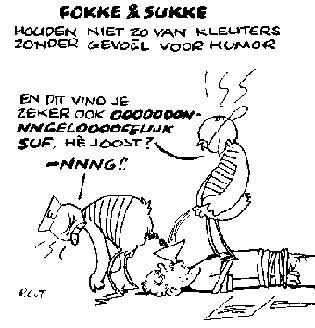 FOKKE & SUKKE
HOUDEN NIET ZO VAN KLEUTERS
ZONDER GEVOEL VOOR HUMOR
EN DIT VIND JE
ZEKER OOK OOOOOOON-
NNGELOOOOFFLIJK
SUF, HÈ JOOST?
—NNNG!!